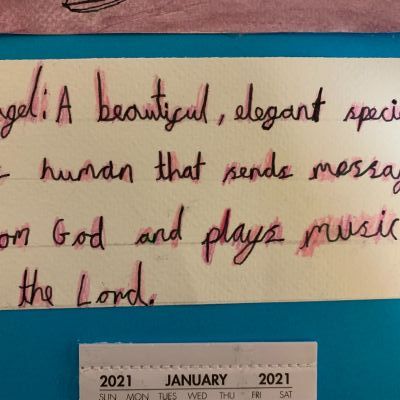 ngel: A beautiful, elegant speci
human that sends messag
om God and plays music
the Lord.
2021 JANUARY 2021
SUN MON TUES WED THU FRI SAT